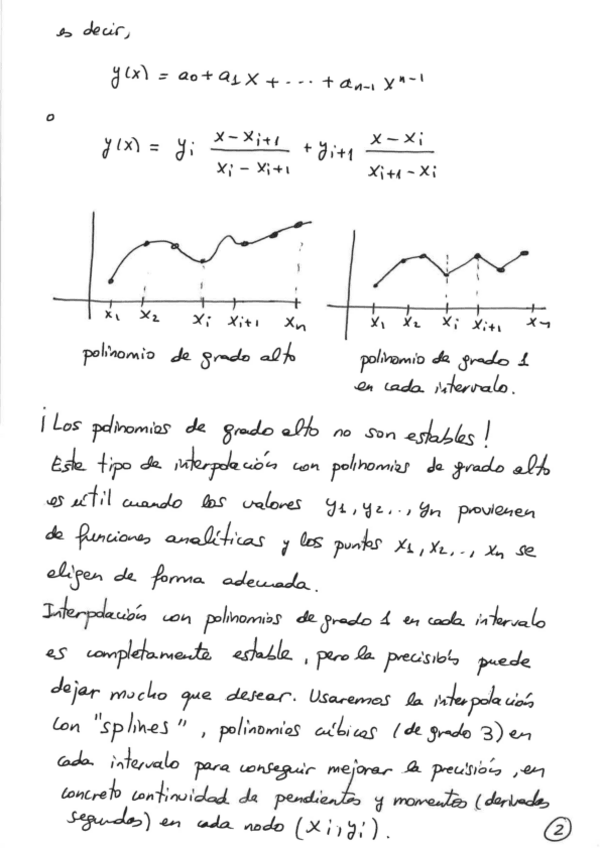 es decir,
y(x) = a0 + a1 x + ... + an-1 x^n-1
o
y(x) = yi (x - xi+1)/(xi - xi+1) + yi+1 (x - xi)/(xi+1 - xi)
x1 x2 xi xi+1 xn
x1 x2 xi xi+1 xn
polinomio de grado alto
polinomio de grado 1
en cada intervalo.
¡Los polinomios de grado alto no son estables!
Este tipo de interpolación con polinomios de grado alto
es útil cuando los valores y1, y2, .., yn provienen
de funciones analíticas y los puntos x1, x2, .., xn se
eligen de forma adecuada.
Interpolación con polinomios de grado 1 en cada intervalo
es completamente estable, pero la precisión puede
dejar mucho que desear. Usaremos la interpolación
con "splines", polinomios cúbicos (de grado 3) en
cada intervalo para conseguir mejorar la precisión, en
concreto continuidad de pendientes y momentos (derivadas
segundas) en cada nodo (xi, yi).
2